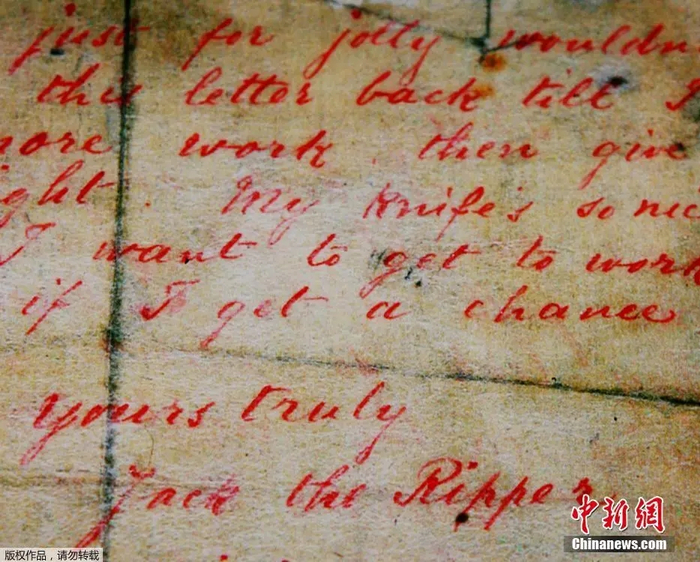 just for jolly wouldn
this letter back till I
more work, then give
ight. My Knife's so nic
I want to get to work
if I get a chance
yours truly
Jack the Ripper
中新网
Chinanews.com
版权作品，请勿转载